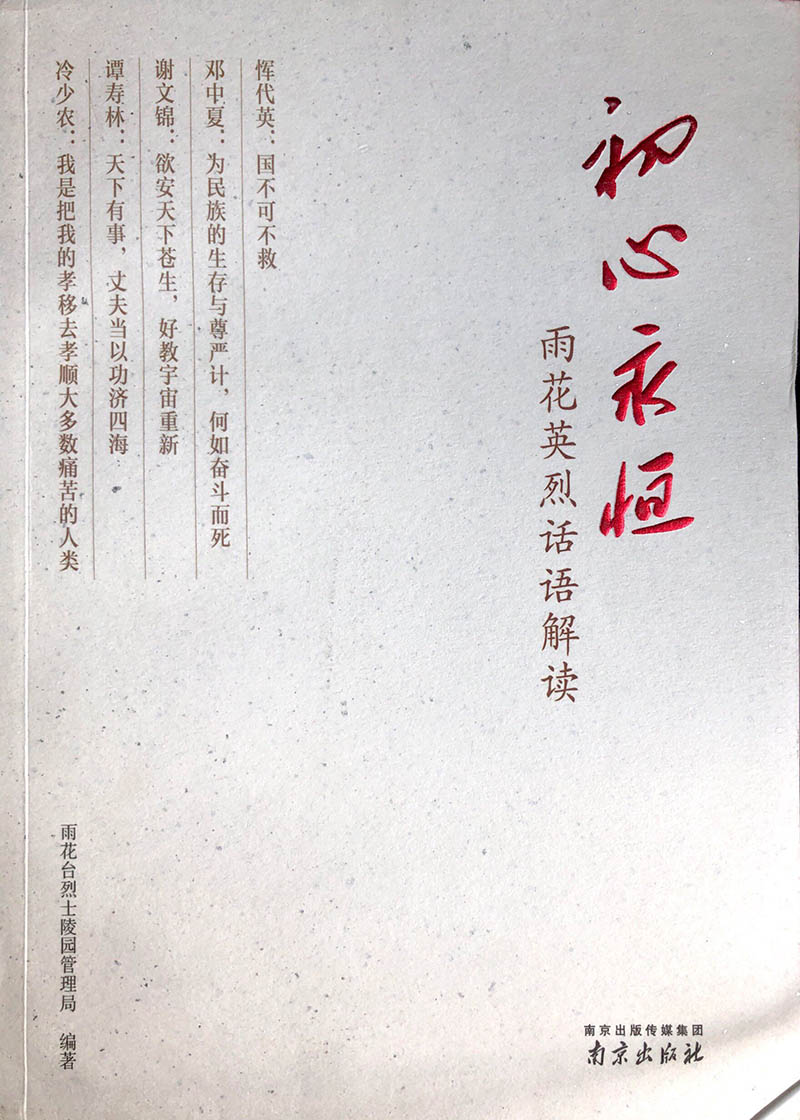 初心永恒
雨花英烈话语解读
恽代英：国不可不救
邓中夏：为民族的生存与尊严计，何如奋斗而死
谢文锦：欲安天下苍生，好教宇宙重新
谭寿林：天下有事，丈夫当以功济四海
冷少农：我是把我的孝移去孝顺大多数痛苦的人类
雨花台烈士陵园管理局 编著
南京出版传媒集团
南京出版社